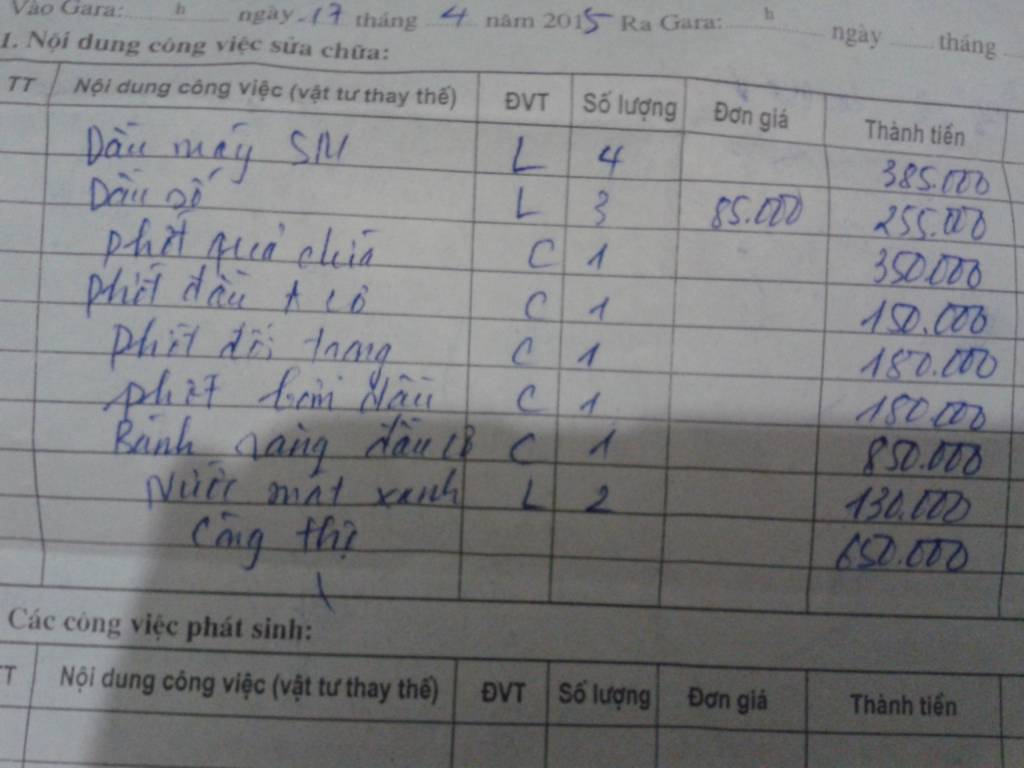 Vào Gara: h ngày 17 tháng 4 năm 2015 Ra Gara: h ngày tháng
1. Nội dung công việc sửa chữa:
TT Nội dung công việc (vật tư thay thế) ĐVT Số lượng Đơn giá Thành tiền
Dầu máy SM L 4 385.000
Dầu số L 3 85.000 255.000
phớt quả chia C 1 350.000
phớt đầu cô C 1 150.000
phớt đổi trong C 1 180.000
phớt bơm dầu C 1 180.000
Bánh răng đầu cô C 1 850.000
Nước mát xanh L 2 130.000
Công thợ 650.000
Các công việc phát sinh:
TT Nội dung công việc (vật tư thay thế) ĐVT Số lượng Đơn giá Thành tiền